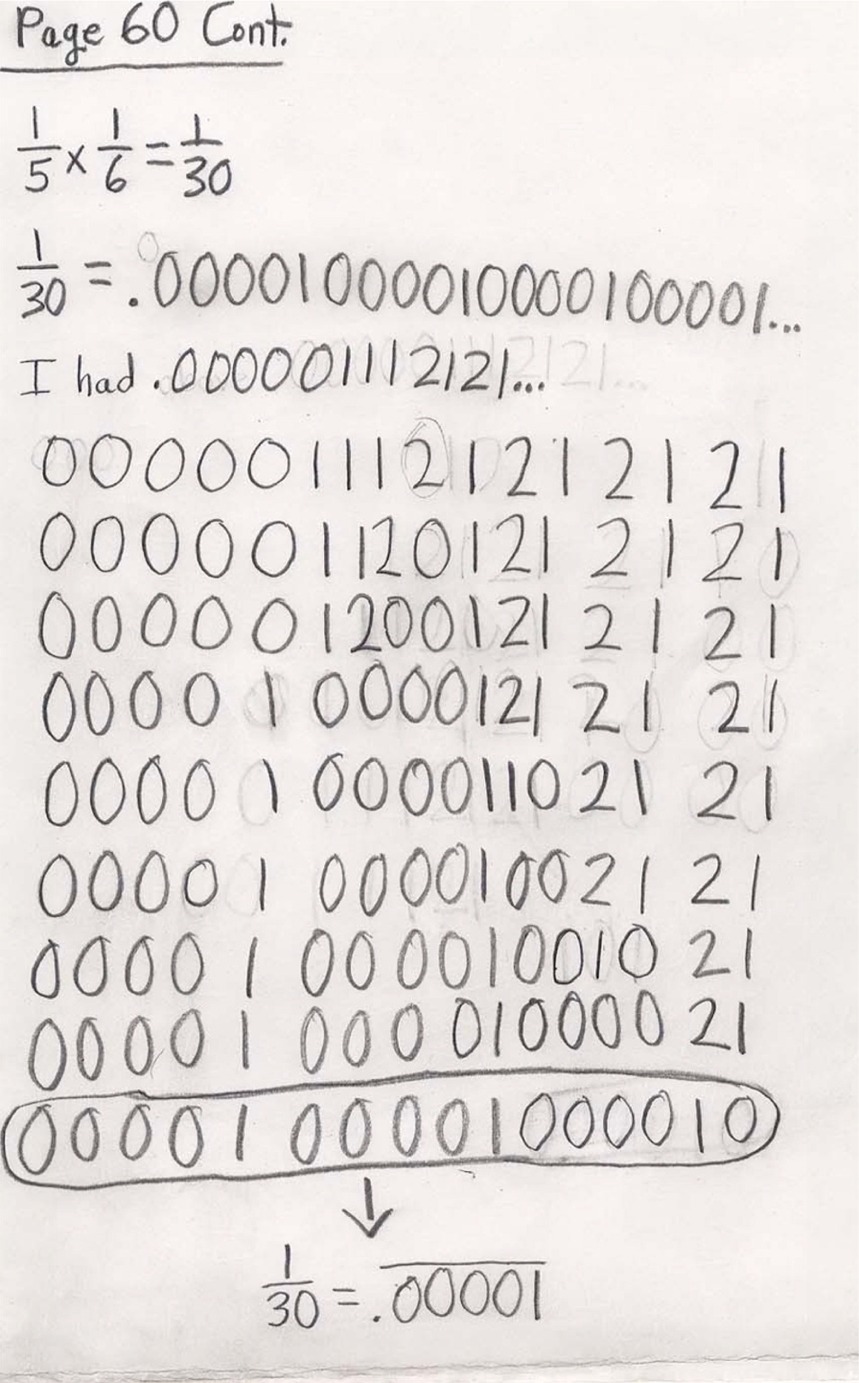 Page 60 Cont.
1/5 × 1/6 = 1/30
1/30 = .00001000010000100001...
I had .000001112121...
0000011121212121
0000011201212121
0000012001212121
0000100001212121
0000100001102121
0000100001002121
0000100001001021
0000100001000021
0000100001000010
↓
1/30 = .00001